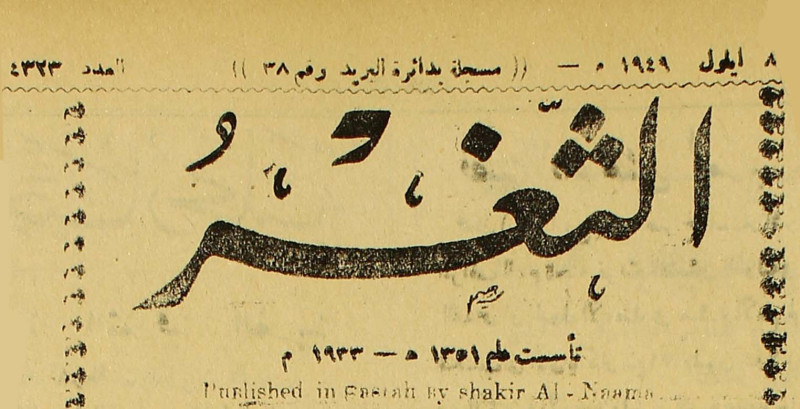 ٨ ايلول ١٩٤٩ م — (( مسجلة بدائرة البريد وقم ٣٨ )) العدد ٤٣٢٣
الثَّغْرُ
تأسست عام ١٣٥١ ه — ١٩٣٣ م
Published in Basrah By shakir Al - Naama